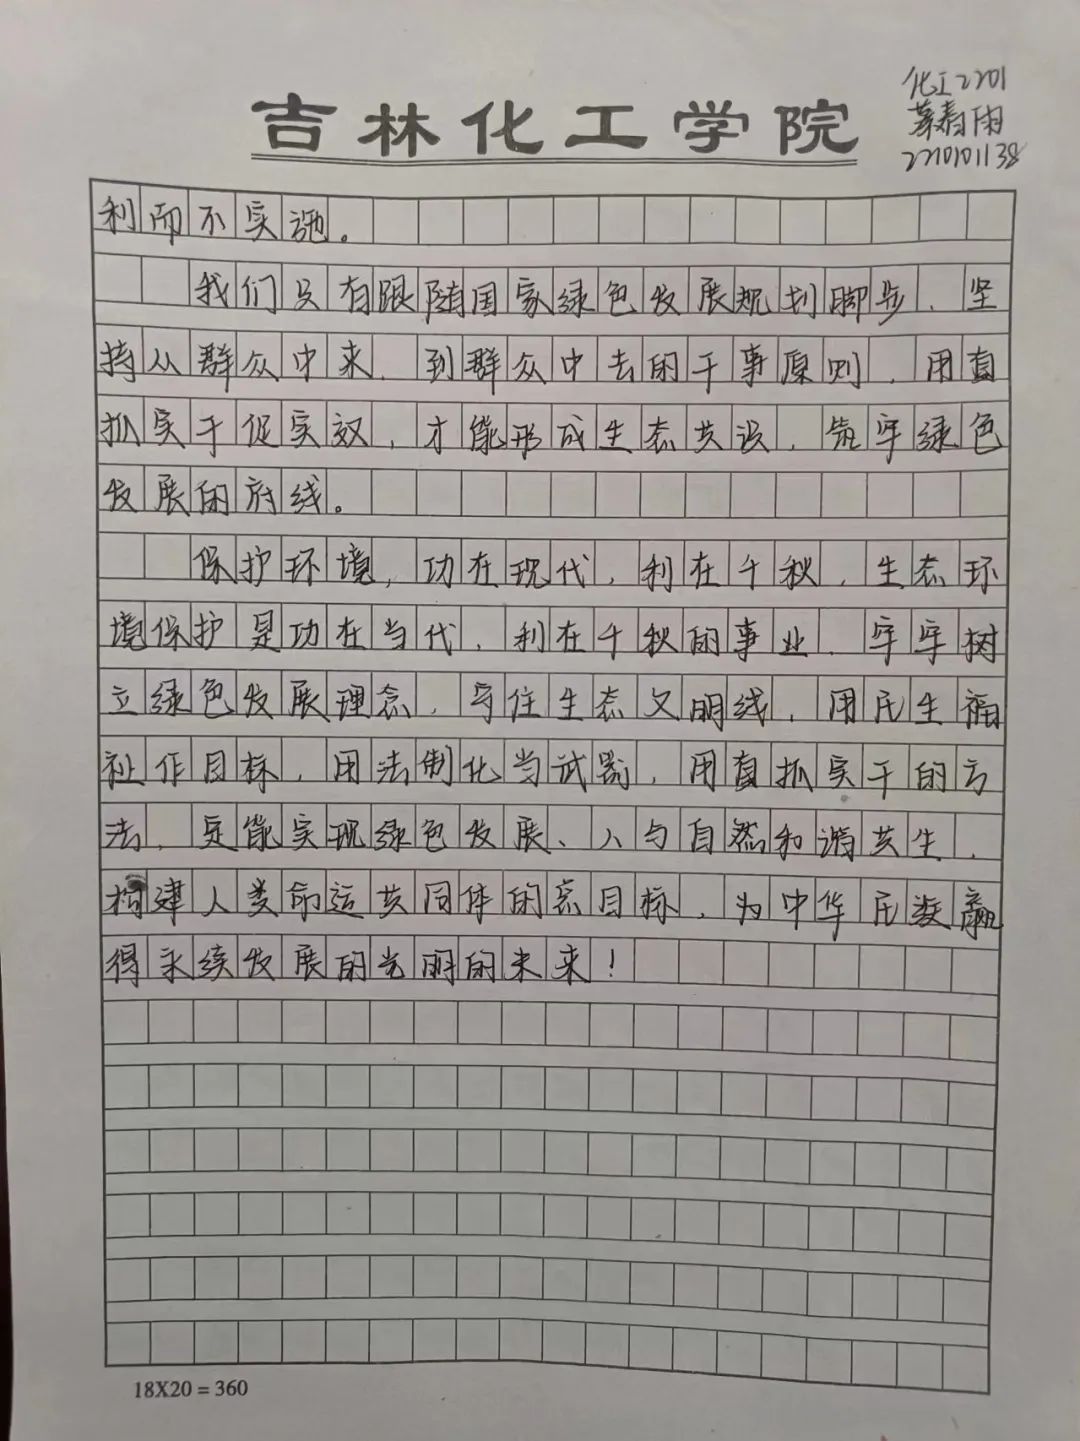 化工2201
吉林化工学院
春雨
2210101138
利而不实施。
我们只有跟随国家绿色发展规划脚步，坚
持从群众中来，到群众中去的干事原则，用直
抓实干促实效，才能形成生态共识，筑牢绿色
发展的府线。
保护环境，功在现代，利在千秋，生态环
境保护是功在当代，利在千秋的事业，牢牢树
立绿色发展理念，守住生态文明线，用民生福
祉作目标，用法制化当武器，用直抓实干的方
法，定能实现绿色发展、人与自然和谐共生，
构建人类命运共同体的总目标，为中华民族赢
得永续发展的光明的未来！
18X20=360